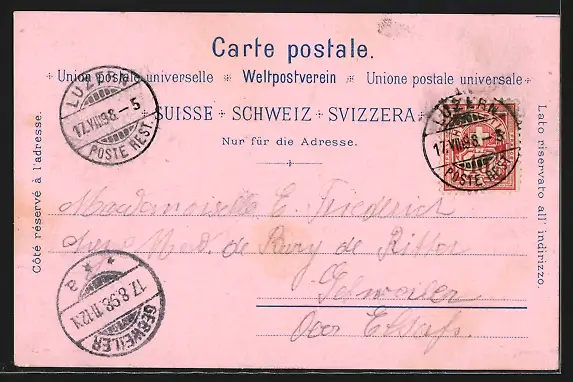 Carte postale.
Union postale universelle Weltpostverein Unione postale universale
SUISSE SCHWEIZ SVIZZERA
Nur für die Adresse.
Côté réservé à l'adresse.
Lato riservato all' indirizzo.
LUZERN
17.VIII.98.-5
POSTE REST.
LUZERN
17.VIII.98.-5
POSTE REST.
Mademoiselle E. Friederich
de Bary de Ritter
Gebweiler
Elsass.
17.8.98
GEBWEILER